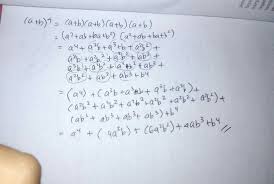 (a+b)⁴ = (a+b)(a+b)(a+b)(a+b)
= (a²+ab+ba+b²) (a²+ab+ba+b²)
= a⁴ + a³b + a³b + a²b² +
a³b + a²b² + a²b² + ab³ +
a³b + a²b² + a²b² + ab³ +
a²b² + ab³ + ab³ + b⁴
= (a⁴) + (a³b + a³b + a³b + a³b) +
(a²b² + a²b² + a²b² + a²b² + a²b² + a²b²) +
(ab³ + ab³ + ab³ + ab³) + b⁴
= a⁴ + (4a³b) + (6a²b²) + 4ab³ + b⁴ //